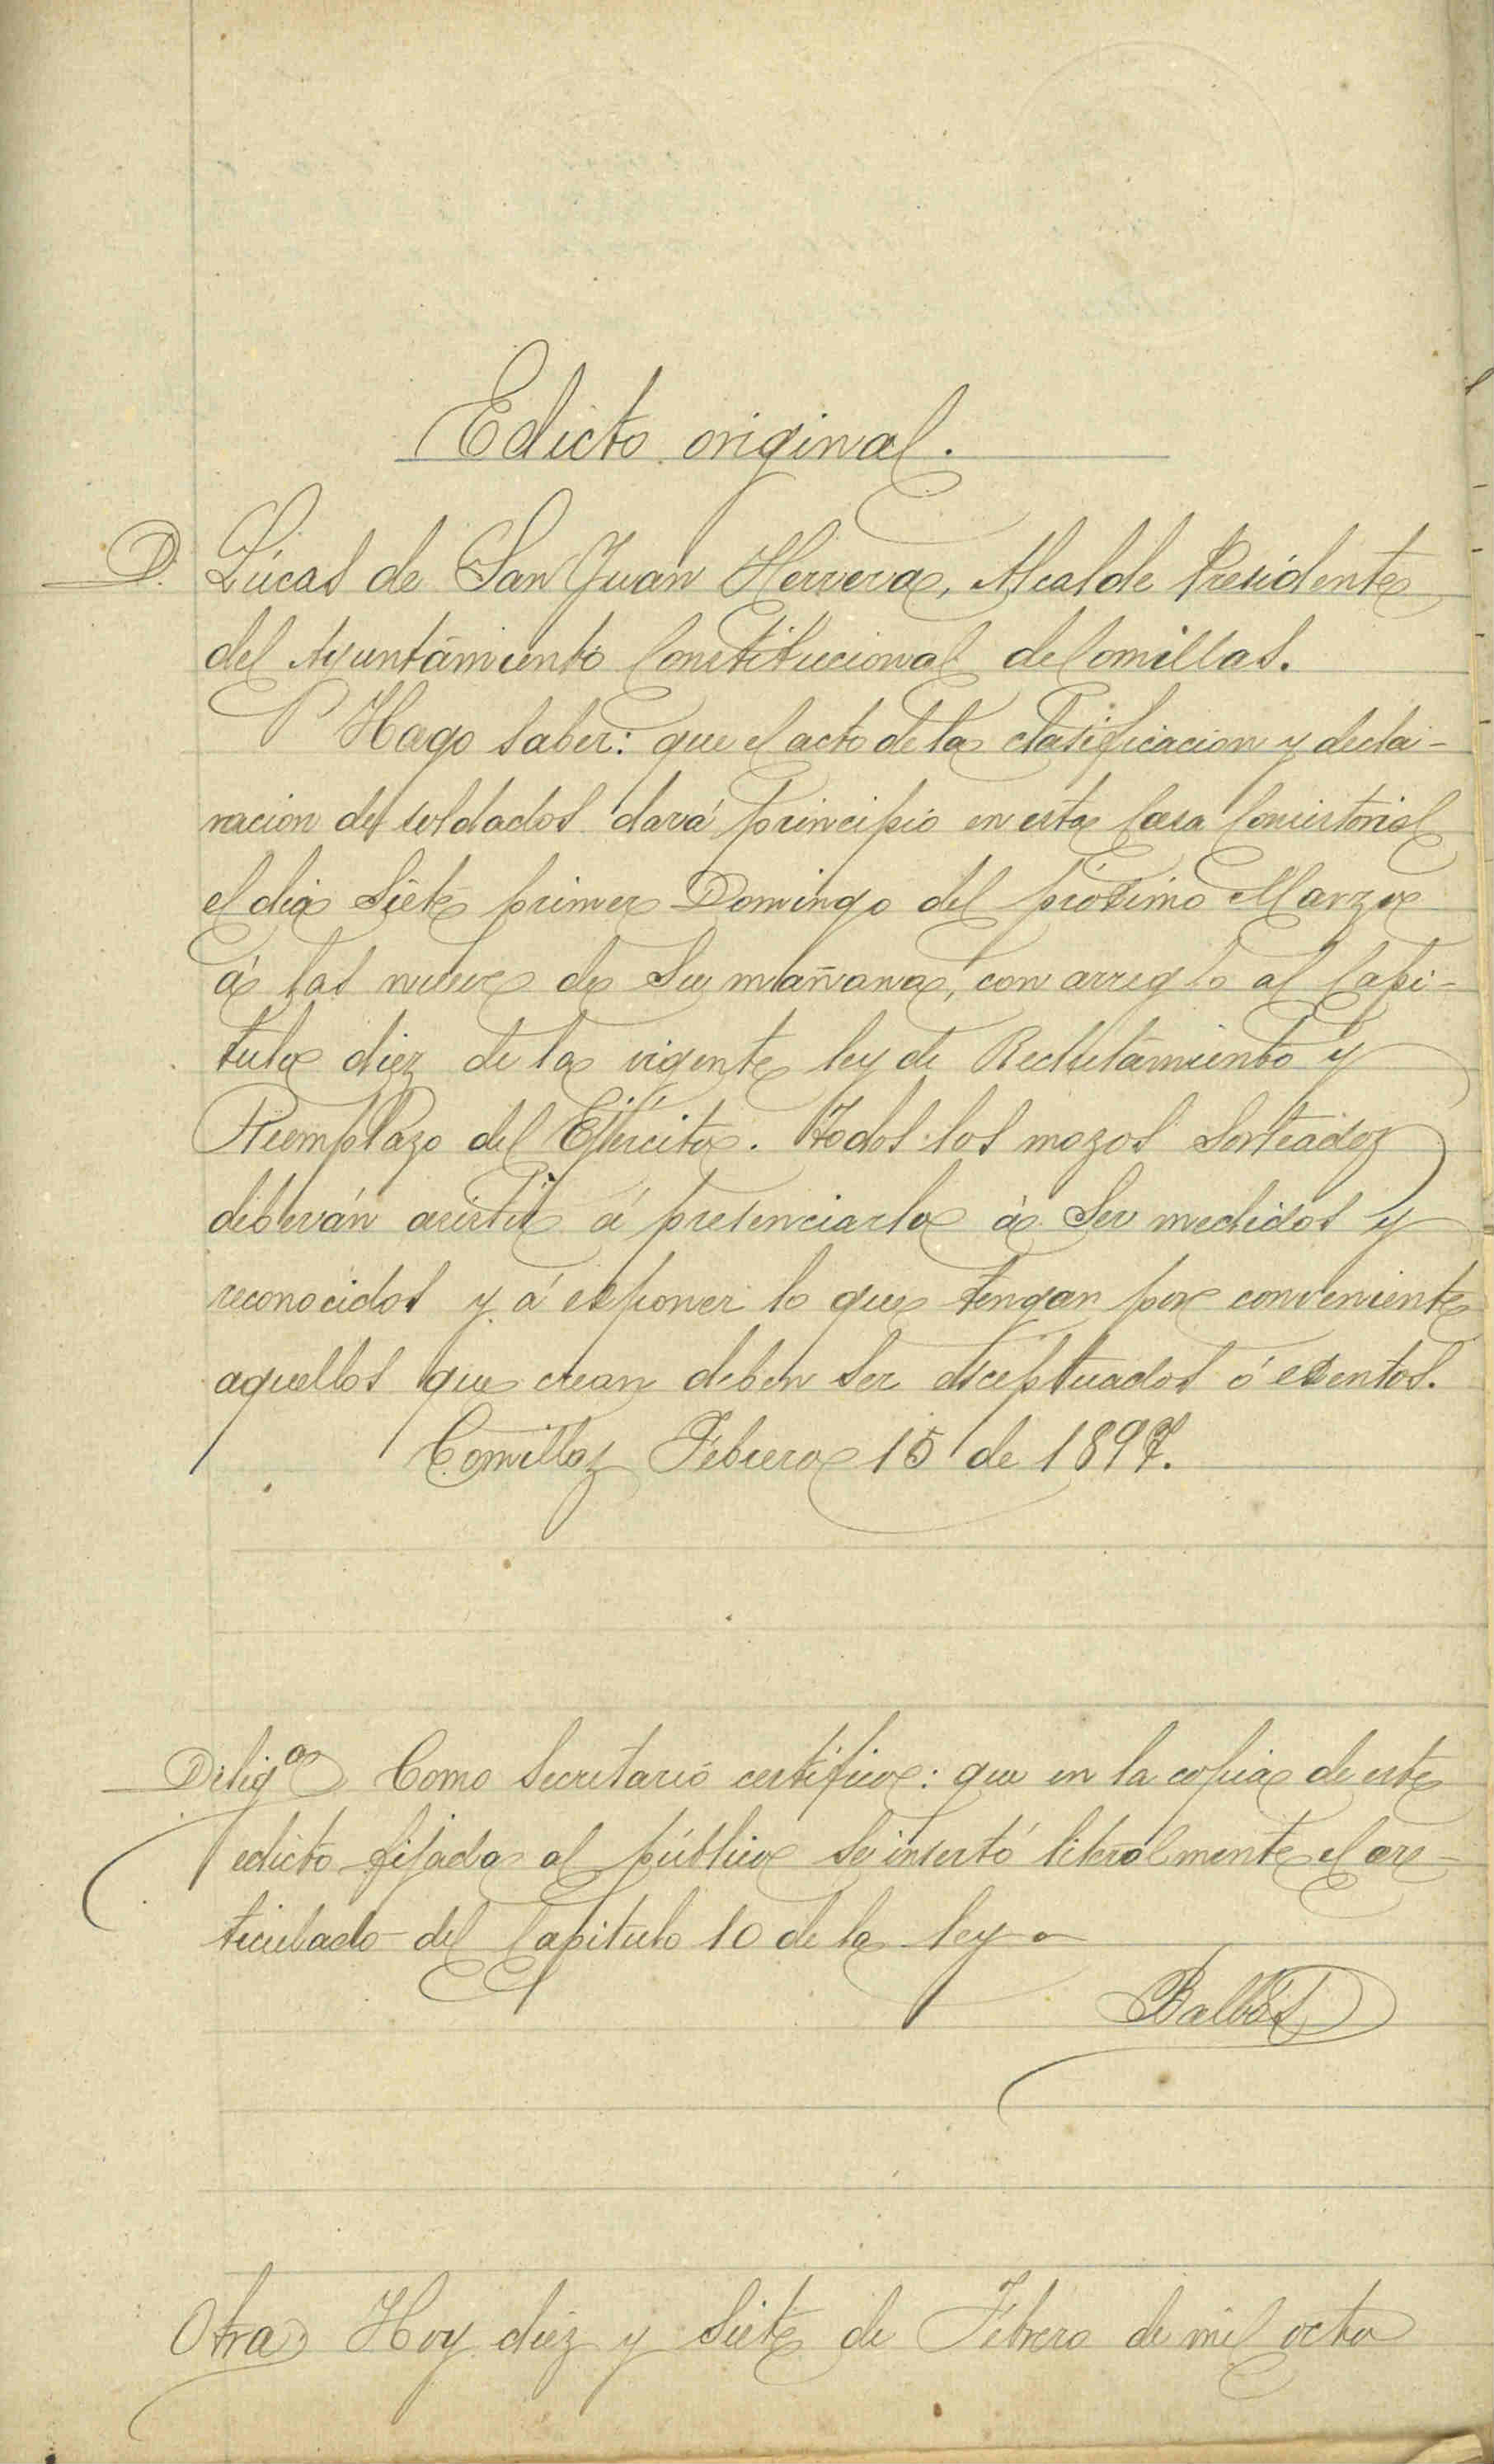 Edicto original.
D. Lúcas de San Juan Herrera, Alcalde Presidente
del Ayuntamiento Constitucional de Comillas.
Hago saber: que el acto de la clasificacion y decla-
racion de soldados dará principio en esta Casa Consistorial
el dia siete primer Domingo del próximo Marzo
á las nueve de su mañana, con arreglo al Capi-
tulo diez de la vigente ley de Reclutamiento y
Reemplazo del Ejército. Todos los mozos sorteados
deberán asistir á presenciarlo á ser medidos y
reconocidos y á exponer lo que tengan por conveniente
aquellos que crean deben ser esceptuados ó exentos.
Comillas Febrero 15 de 1897.
Dilig.a Como Secretario certifico: que en la copia de este
edicto fijado al público se insertó literalmente el ar-
ticulado del Capitulo 10 de la ley
Balbás
Otra Hoy diez y siete de Febrero de mil ocho